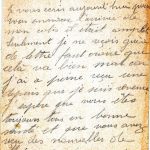 vous écris aujourd'hui pour
vous annoncer l'arrivée de
mon colis il était complet
seulement je ne savais quoi
de lettre faut croire que
cela va bien mal car
j'ai à peine reçu une
depuis que je suis revenu
j'espère que vous êtes
toujours tous en bonne
santé et que vous avez
reçu des nouvelles de